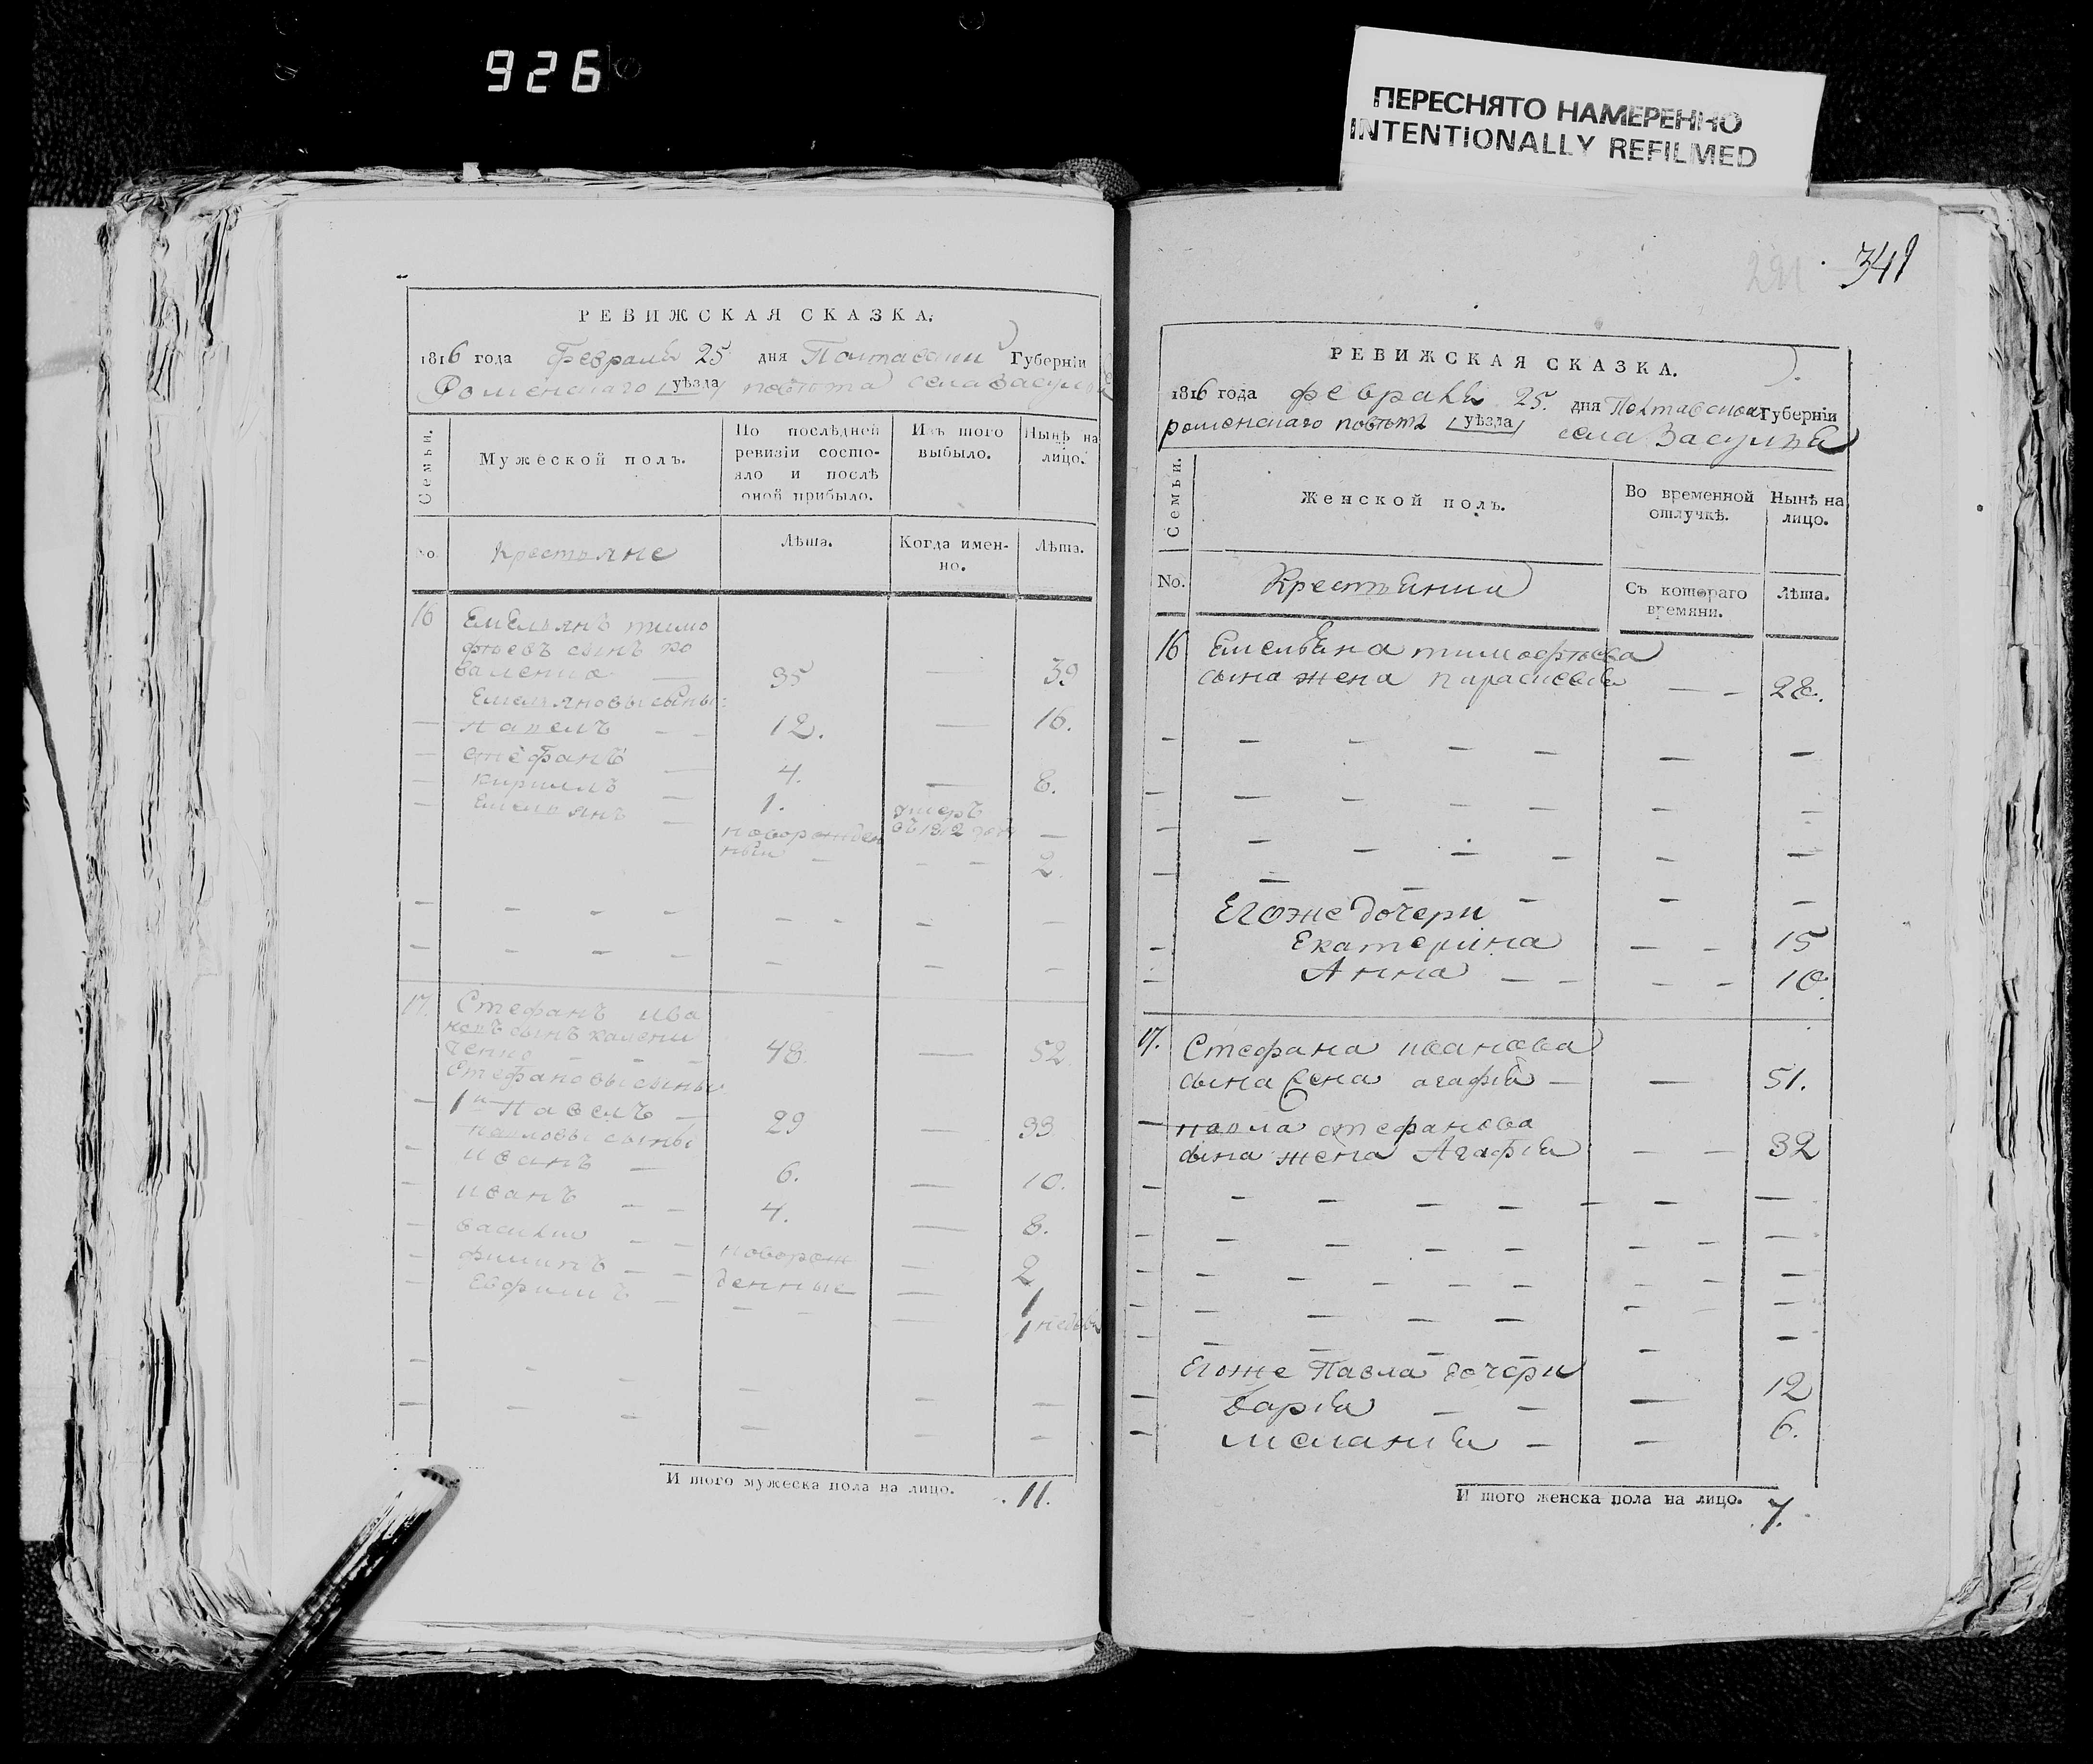 926
ПЕРЕСНЯТО НАМЕРЕННО
INTENTIONALLY REFILMED
РЕВИЖСКАЯ СКАЗКА.
1816 года Февраля 25 дня Полтавской Губерніи
Роменскаго уѣзда повѣта села Засулья
Семьи.
Мужеской полъ.
По послѣдней
ревизіи состо-
яло и послѣ
оной прибыло.
Изъ того
выбыло.
Нынѣ на
лицо.
No.
Крестьяне
Лѣта.
Когда имен-
но.
Лѣта.
16 Емельянъ тимо
фѣевъ сынъ ко
валенко — 35 — 39
Емельяновы сыны
— павелъ — — 12. — 16.
— стефанъ — 4. — 8.
— кириллъ — 1. умеръ
въ 1812 годѣ —
— Емельянъ — новорожден
ный — — — 2.
17. Стефанъ ива
новъ сынъ калени
ченко — — 48. — 52
Стефановы сыны
— 1й павелъ — 29 — 33
павловы сыны
— иванъ — 6. — 10.
— иванъ — — 4. — 8.
— василий — — новорож — 2
— филипъ — — денные — 1
— Евфимъ — — — — 1 недѣли
И того мужеска пола на лицо. 11.
291 341
РЕВИЖСКАЯ СКАЗКА.
1816 года февраля 25. дня Полтавской Губерніи
роменскаго повѣта уѣзда села Засулья
Семьи.
Женской полъ.
Во временной
отлучкѣ.
Нынѣ на
лицо.
No.
Крестьянки
Съ котораго
времяни.
Лѣта.
16 Емельяна тимофѣева
сына жена параскевія — — 28.
Егоже дочери
— Екатерина — — 15
— Анна — — — — 10.
17. Стефана иванова
сына жена агафія — — 51.
— павла стефанова
сына жена Агафія — — 32
Егоже Павла дочери
— варія — — — 12
— меланія — — 6.
И того женска пола на лицо. 7.